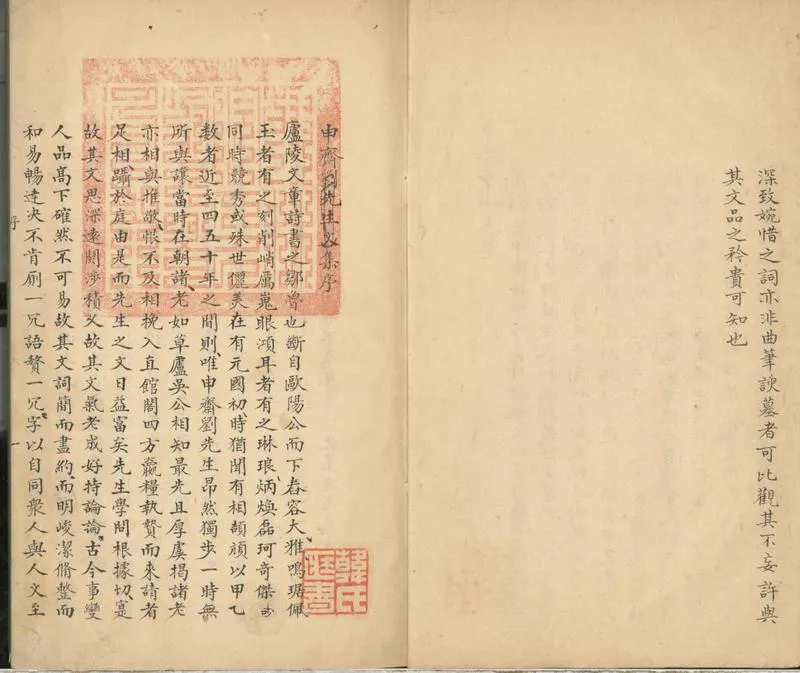 深致婉惜之詞亦非曲筆諛墓者可比觀其不妄許與
其文品之矜貴可知也
申齋劉先生文集序
廬陵文章詩書之鄒魯也斷自歐陽公而下舂容大雅鳴琚佩
玉者有之刻削峭厲嵬眼澒耳者有之琳琅炳煥磊珂奇傑或
同時競秀或殊世儷美在有元國初時猶聞有相頡頏以甲乙
数者近至四五十年之間則唯申齋劉先生昂然獨步一時無
所與讓當時在朝諸老如草廬吳公相知最先且厚虞揭諸老
亦相與推敬恨不及相挽入直館閣四方羸糧執贄而來請者
足相躡於庭由是而先生之文日益富矣先生學問根據切寔
故其文思深遠閱涉積久故其文氣老成好持論論古今事變
人品髙下確然不可易故其文詞簡而盡約而明峻潔脩整而
和易暢達决不肯廁一冗語贅一冗字以自同衆人與人文至
序
一
韓氏
書